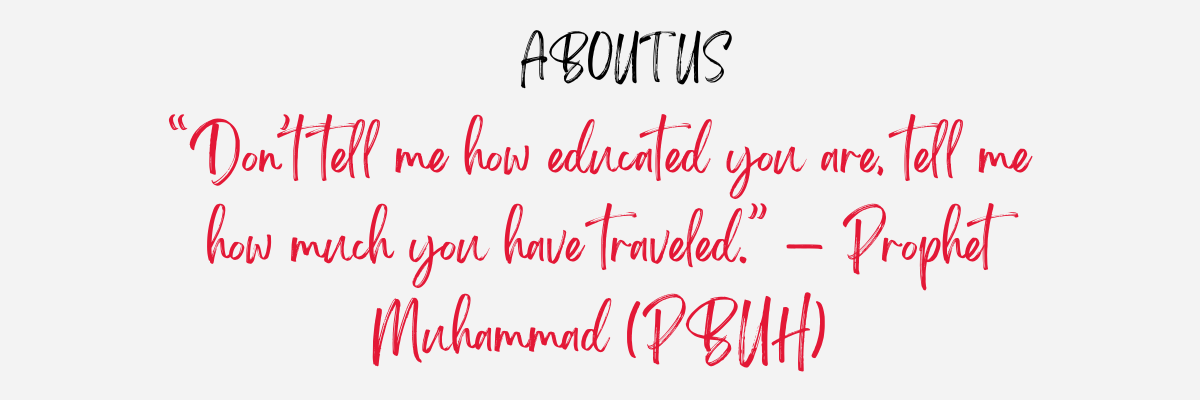 ABOUT US
“Don't tell me how educated you are, tell me
how much you have traveled.” – Prophet
Muhammad (PBUH)